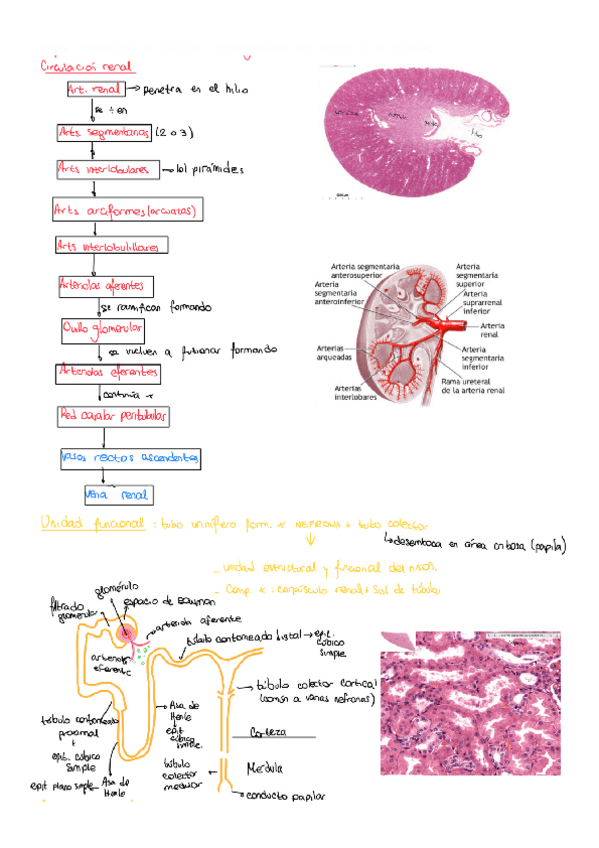 Circulación renal
Art. renal → penetra en el hilio
se ÷ en
Arts segmentarias (2 o 3)
Arts interlobulares → lol pirámides
Arts arciformes (arcuatas)
Arts interlobulillares
Arteriolas aferentes
se ramifican formando
Ovillo glomerular
se vuelven a fusionar formando
Arteriolas eferentes
continúa x
Red capilar peritubular
Vasos rectos ascendentes
Vena renal
Hilio
Arteria segmentaria anterosuperior
Arteria segmentaria superior
Arteria segmentaria anteroinferior
Arteria suprarrenal inferior
Arteria renal
Arterias arqueadas
Arteria segmentaria inferior
Arterias interlobares
Rama ureteral de la arteria renal
Unidad funcional : tubo urinífero form. x NEFRONA + tubo colector
↳ desemboca en área cribosa (papila)
_ unidad estructural y funcional del riñón.
_ Comp. x : corpúsculo renal + Sol de túbulos
glomérulo
filtrado glomerular
espacio de Bowman
arteriola aferente
arteriola eferente
túbulo contorneado distal → epit. cúbico simple
túbulo colector cortical (común a varias nefronas)
Asa de Henle
epit cúbico simple.
túbulo contorneado proximal
+
epit. cúbico simple
epit plano simple ← Asa de Henle
túbulo colector medular
Corteza
Médula
→ conducto papilar